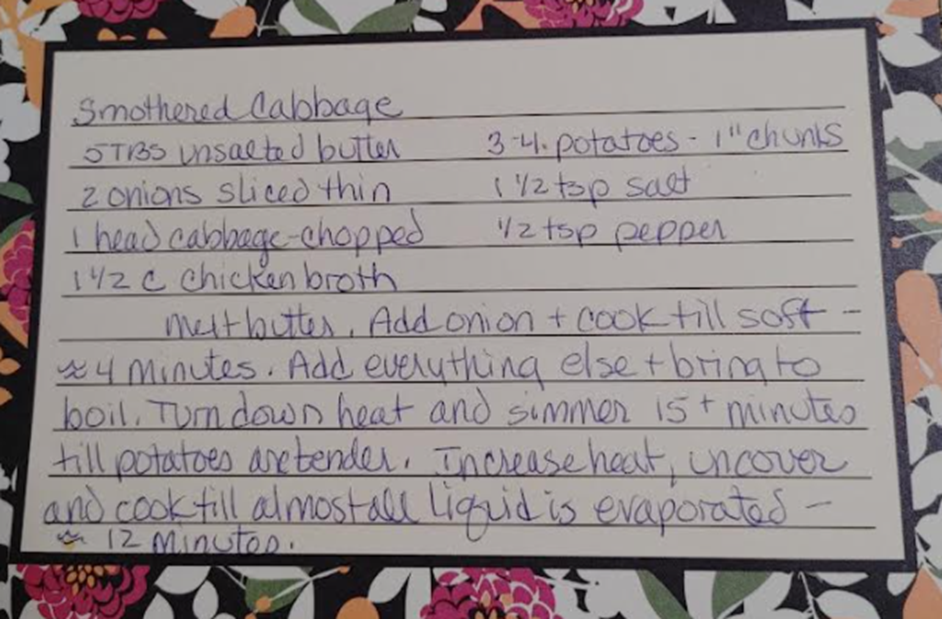 Smothered Cabbage
5 TBS unsalted butter 3-4. potatoes - 1" chunks
2 onions sliced thin 1 1/2 tsp salt
1 head cabbage-chopped 1/2 tsp pepper
1 1/2 C chicken broth
Melt butter. Add onion + cook till soft -
≈ 4 minutes. Add everything else + bring to
boil. Turn down heat and simmer 15+ minutes
till potatoes are tender. Increase heat, uncover
and cook till almost all liquid is evaporated -
≈ 12 minutes.